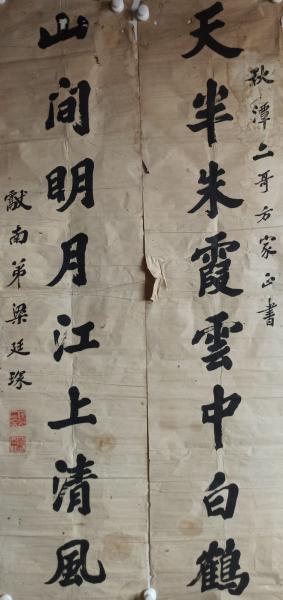 秋潭二哥方家正書
天半朱霞雲中白鶴
山間明月江上清風
獻南弟梁廷琛